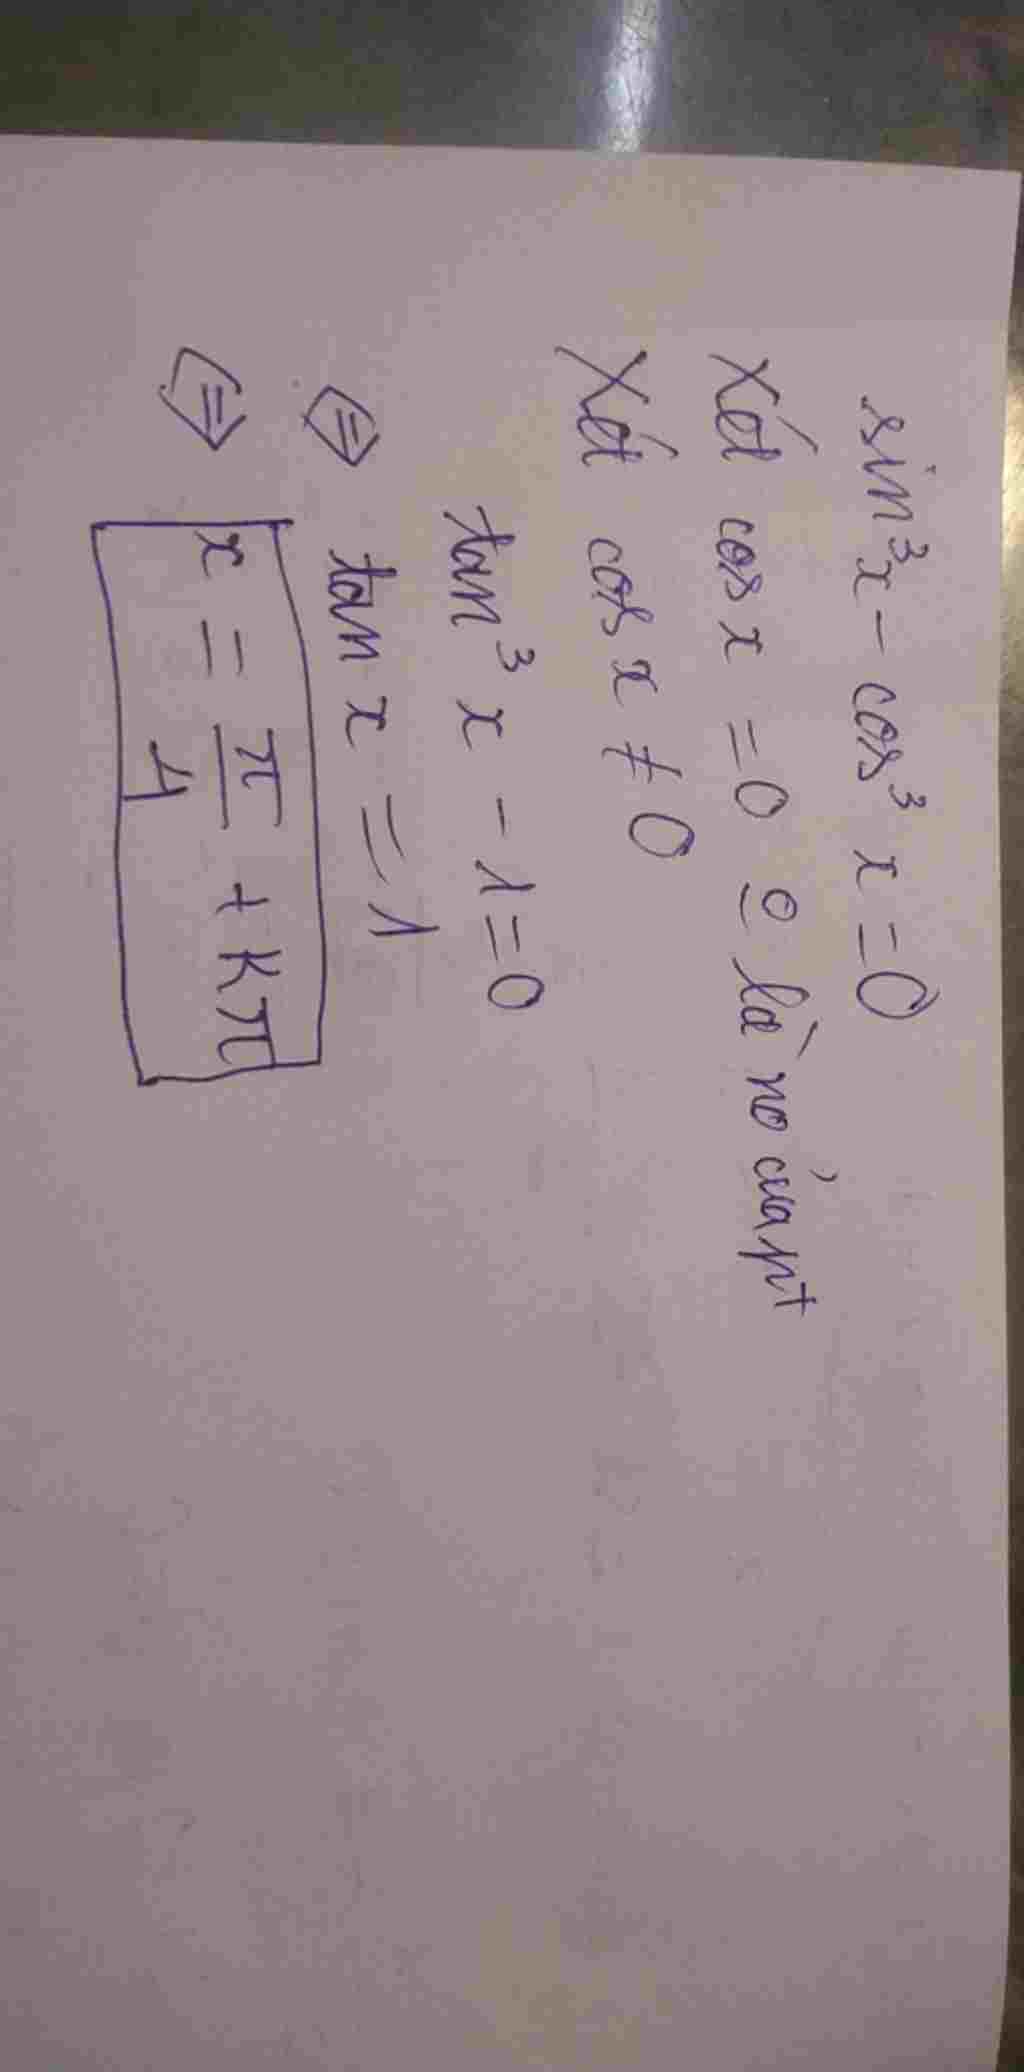 sin³x - cos³x = 0
Xét cos x = 0 ○ là no của pt
Xét cos x ≠ 0
tan³ x - 1 = 0
⇔ tan x = 1
⇔ x = π/4 + kπ